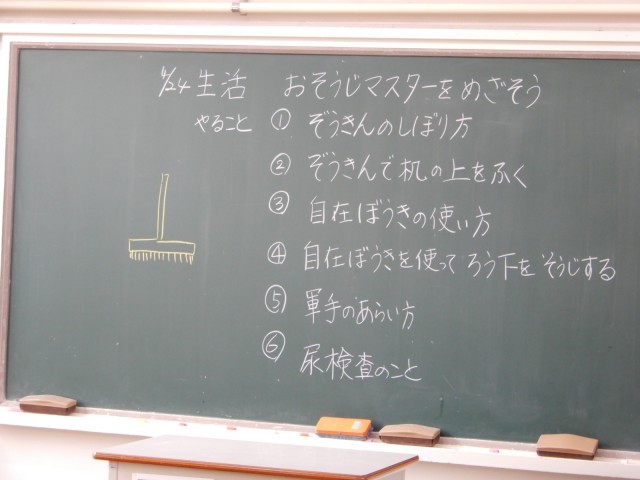 11/24 生活 おそうじマスターをめざそう
やること ① ぞうきんのしぼり方
② ぞうきんで机の上をふく
③ 自在ぼうきの使い方
④ 自在ぼうきを使ってろう下をそうじする
⑤ 軍手のあらい方
⑥ 尿検査のこと